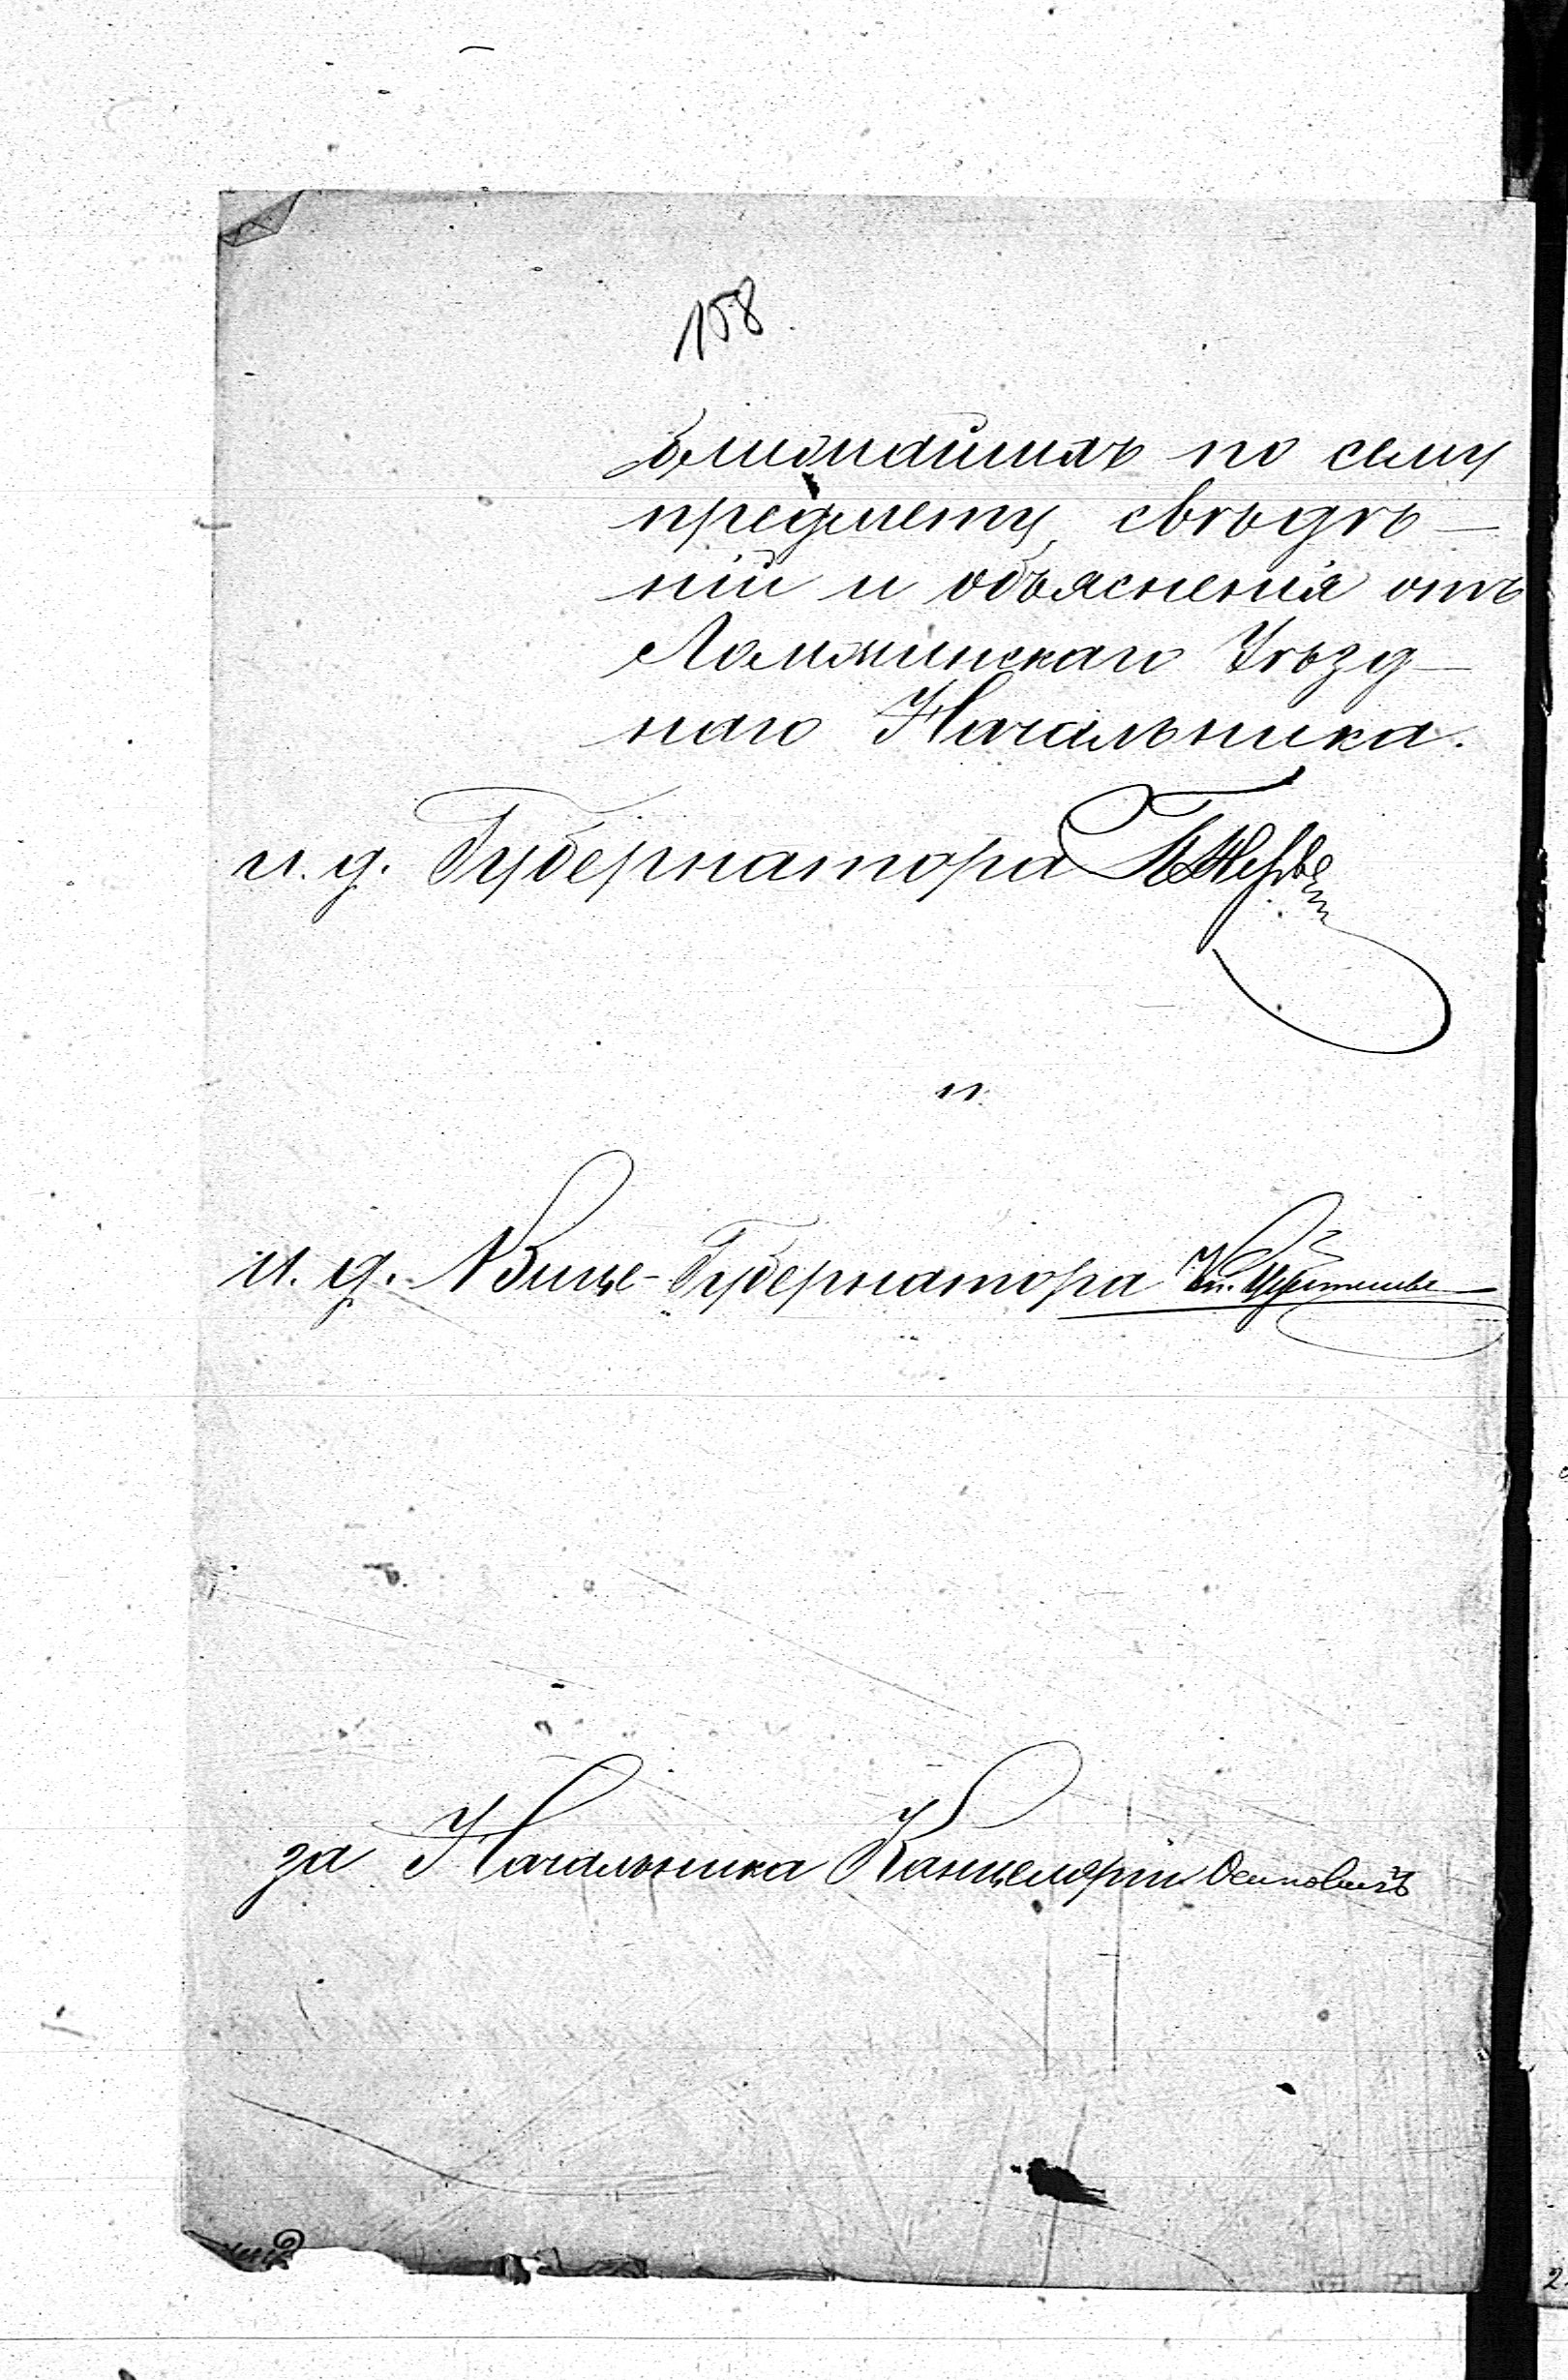 158.
ближайшихъ по сему
предмету свѣдѣ-
ній и объясненія отъ
Ломжинскаго Уѣзд-
наго Начальника.
и. д. Губернатора
и
и. д. Вице-Губернатора Кн.
за Начальника Канцеляріи Осиповичъ